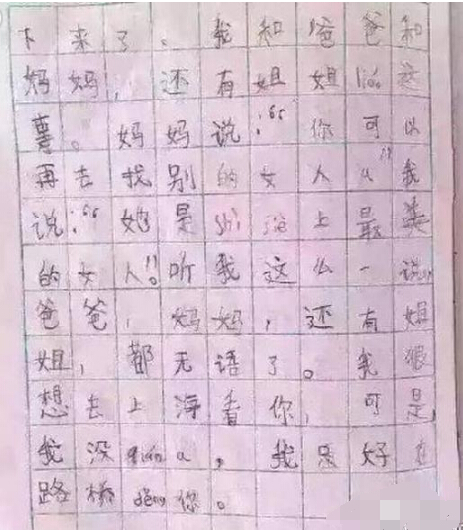 下来了。我和爸爸和
妈妈，还有姐姐liáo这
事。妈妈说：“你可以
再去找别的女人a”我
说：“她是shì jiè上最美
的女人”。听我这么一说，
爸爸，妈妈，还有姐
姐，都无语了。我很
想去上海看你，可是，
我没qián a，我只好在
路桥děng你。